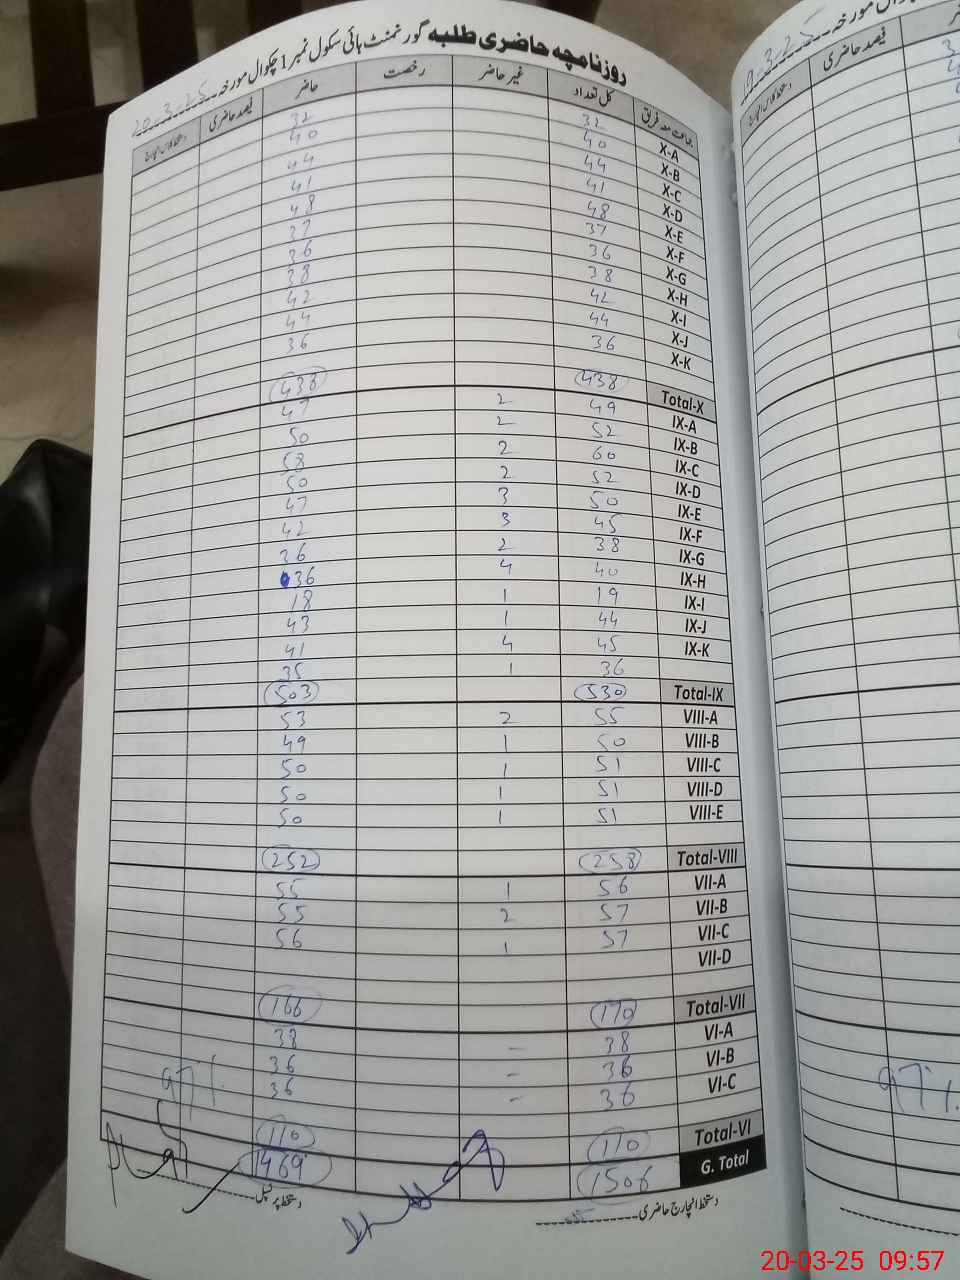 روزنامچہ حاضری طلبہ گورنمنٹ ہائی سکول نمبر 1 چکوال مورخہ 20-3-25
جماعت معہ فریق کل تعداد غیر حاضر رخصت حاضر فیصد حاضری دستخط کلاس انچارج
X-A 32 32
X-B 40 40
X-C 44 44
X-D 41 41
X-E 48 48
X-F 37 37
X-G 36 36
X-H 38 38
X-I 42 42
X-J 44 44
X-K 36 36
Total-X 438 438
IX-A 49 2 47
IX-B 52 2 50
IX-C 60 2 58
IX-D 52 2 50
IX-E 50 3 47
IX-F 45 3 42
IX-G 38 2 36
IX-H 40 4 36
IX-I 19 1 18
IX-J 44 1 43
IX-K 45 4 41
36 1 35
Total-IX 530 503
VIII-A 55 2 53
VIII-B 50 1 49
VIII-C 51 1 50
VIII-D 51 1 50
VIII-E 51 1 50
Total-VIII 258 252
VII-A 56 1 55
VII-B 57 2 55
VII-C 57 1 56
VII-D
Total-VII 170 166
VI-A 38 - 38
VI-B 36 - 36
VI-C 36 - 36
97%
Total-VI 110 110
G. Total 1506 1469
دستخط انچارج حاضری
دستخط پرنسپل
19-3-25
فیصد حاضری
دستخط کلاس انچارج
97%
20-03-25 09:57